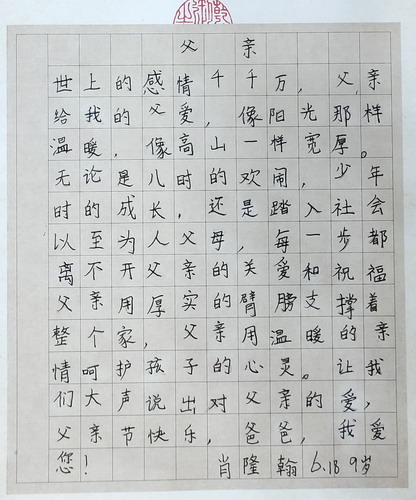 父亲
世上的感情千千万，父亲
给我的父爱，像阳光那样
温暖，像高山一样宽厚。
无论是儿时的欢闹，少年
时的成长，还是踏入社会
以至为人父母，每一步都
离不开父亲的关爱和祝福
父亲用厚实的臂膀支撑着
整个家，父亲用温暖的亲
情呵护孩子的心灵。让我
们大声说出对父亲的爱，
父亲节快乐，爸爸，我爱
您！肖隆翰 6.18 9岁